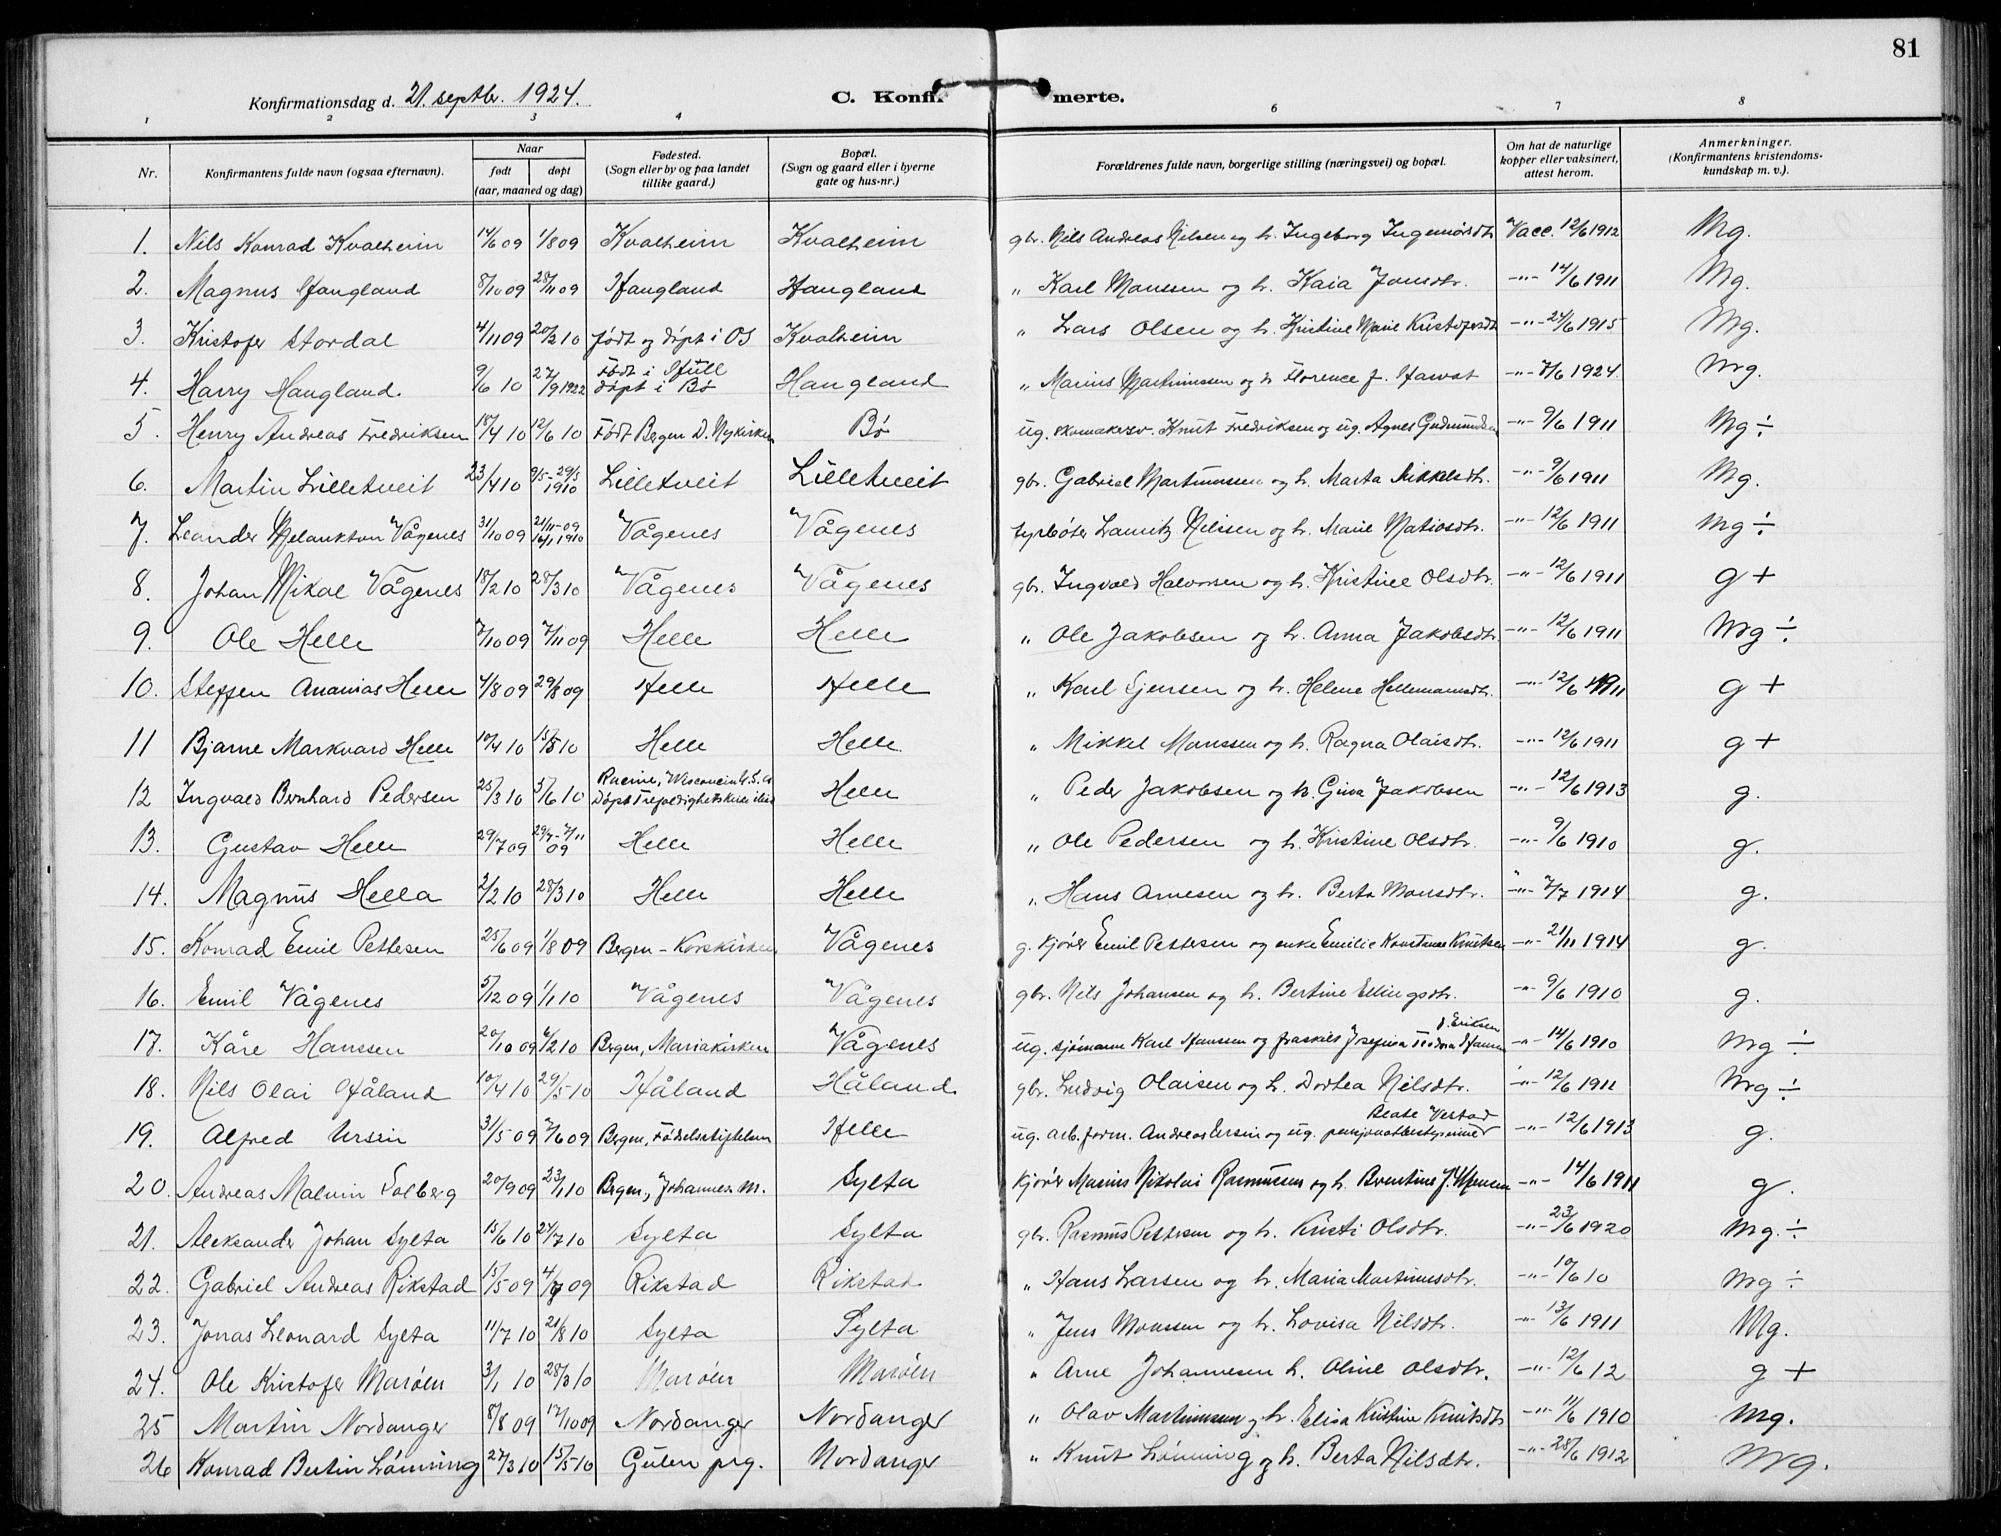 81
Konfirmationsdag d. 21. septbr. 1924.
C. Konfirmerte.
1 2 3 4 6 7 8
Nr. Konfirmantens fulde navn (ogsaa efternavn). Naar født døpt (aar, maaned og dag) Fødested. (Sogn eller by og paa landet tillike gaard.) Bopæl. (Sogn og gaard eller i byerne gate og hus-nr.) Forældrenes fulde navn, borgerlige stilling (næringsvei) og bopæl. Om hat de naturlige kopper eller vaksinert, attest herom. Anmerkninger. (Konfirmantens kristendomskundskap m. v.).
1. Nils Konrad Kvalheim 14/6 09 1/8 09 Kvalheim Kvalheim gbr. Nils Andreas Nilsen og h. Ingeborg Ingemørsdtr Vacc. 12/6 1912 Mg.
2. Magnus Haugland 8/10 09 28/11 09 Haugland Haugland " Karl Monssen og h. Kaia Jonsdtr. -"- 14/6 1911 Mg.
3. Kristofer Stordal 4/11 09 20/2 10 født og døpt i Os Kvalheim " Lars Olsen og h. Kristine Marie Kristofersdt -"- 24/6 1915 Mg.
4. Harry Haugland. 9/6 10 27/9 1922 Født i Hull døpt i Bø Haugland " Marius Martinussen og h. Florence J. -"- 7/6 1924. Mg.
5. Henry Andreas Fredriksen 18/4 10 12/6 10 Født Bergen D. Nykirken Bø ug. skomakersv. Knut Fredriksen og ug. Agnes -"- 9/6 1911 Mg ÷
6. Martin Lilletveit 23/4 10 9/5 - 29/5 1910 Lilletveit Lilletveit gbr. Gabriel Martinussen og h. Marta Mikkelsdtr. -"- 9/6 1911 Mg.
7. Leander Melankton Vågenes 31/10 09 21/11-09 16/1 1910 Vågenes Vågenes fyrbøter Lauritz Nilsen og h. Marie Matiasdtr. -"- 12/6 1911 Mg ÷
8. Johan Mikal Vågenes 18/2 10 28/3 10 Vågenes Vågenes gbr. Ingvald Halvorsen og h. Kristine Olsdtr. -"- 12/6 1911 g +
9. Ole Helle 7/10 09 7/11 09 Helle Helle " Ole Jakobsen og h. Anna Jakobsdtr. -"- 12/6 1911 Mg ÷
10. Steffen Ananias Helle 4/8 09 29/8 09 Helle Helle " Karl Sjursen og h. Helene Hellemannsdtr. -"- 12/6 1911 g +
11 Bjarne Markvard Helle 10/4 10 15/5 10 Helle Helle " Mikkel Monssen og h. Ragna Olaisdtr. -"- 12/6 1911 g +
12 Ingvald Bernhard Pedersen 25/3 10 5/6 10 Racine, Wisconsin U.S.A Døpt Trefoldighetskirke Helle " Peder Jakobsen og h. Gina Jakobsen -"- 12/6 1913 g.
13. Gustav Helle 29/7 09 29/7 - 7/11 09 Helle Helle " Ole Pedersen og h. Kristine Olsdtr. -"- 9/6 1910 g.
14. Magnus Hella 2/2 10 28/3 10 Helle Helle " Hans Arnesen og h. Berta Monsdtr. -"- 7/7 1914 g.
15. Konrad Emil Pettesen 25/6 09 1/8 09 Bergen - Korskirken Vågenes g. kjører Emil Pettersen og enke Emilie Konstanse Knutsen -"- 21/11 1914 g.
16. Emil Vågenes 5/12 09 1/1 10 Vågenes Vågenes gbr. Nils Johansen og h. Bertine Ellingsdtr. -"- 9/6 1910 g.
17. Kåre Hanssen 20/10 09 6/2 10 Bergen, Mariakirken Vågenes ug. sjømann Karl Hanssen og fraskilt Josefine Teodora Hansen f. Eriksen -"- 14/6 1910 Mg ÷
18. Nils Olai Håland 10/4 10 29/5 10 Håland Håland gbr. Ludvig Olaisen og h. Dortea Nilsdtr. -"- 12/6 1911 Mg ÷
19. Alfred Ursin 31/5 09 7/6 09 Bergen, Fødselsstiftelsen Helle ug. arb. form. Andreas Ursin og ug. pensjonatbestyrerinne Beate Vestad -"- 12/6 1913 g.
20. Andreas Malvin Solberg 20/9 09 23/1 10 Bergen, Johannes M. Sylta kjører Marius Nikolai Rasmussen og h. Berntine J. Monsen -"- 14/6 1911 g.
21. Aleksander Johan Sylta 15/6 10 24/7 10 Sylta Sylta gbr. Rasmus Pettersen og h. Kristi Olsdtr. -"- 23/6 1920 Mg. ÷
22. Gabriel Andreas Rikstad 15/5 09 4/7 09 Rikstad Rikstad " Hans Larsen og h. Maria Martinusdtr. -"- 10/6 10 Mg ÷
23. Jonas Leonard Sylta 11/7 10 21/8 10 Sylta Sylta " Jens Monsen og h. Lovisa Nilsdtr. -"- 13/6 1911 Mg.
24. Ole Kristofer Marøen 3/1 10 28/3 10 Marøen Marøen " Arne Johannesen h. Oline Olsdtr. -"- 12/6 12 g +
25 Martin Nordanger 8/8 09 17/10 09 Nordanger Nordanger " Olav Martinussen og h. Elisa Kristine Knutsdt -"- 11/6 1910 Mg.
26 Konrad Bertin Lønning 27/3 10 15/5 10 Gulen prg. Nordanger " Knut Lønning og h. Berta Nilsdtr. -"- 28/6 1912 Mg.